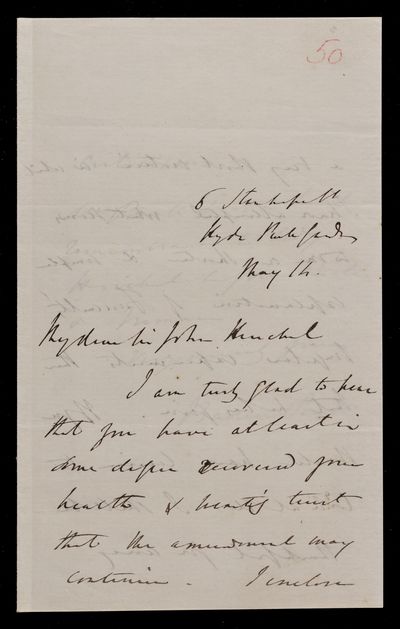 50
6 Stanhope St
Hyde Park Gardens
May 14.
My dear Sir John Herschel
I am truly glad to hear
that you have at least in
some degree recovered your
health & heartily trust
that the amendment may
continue. I enclose